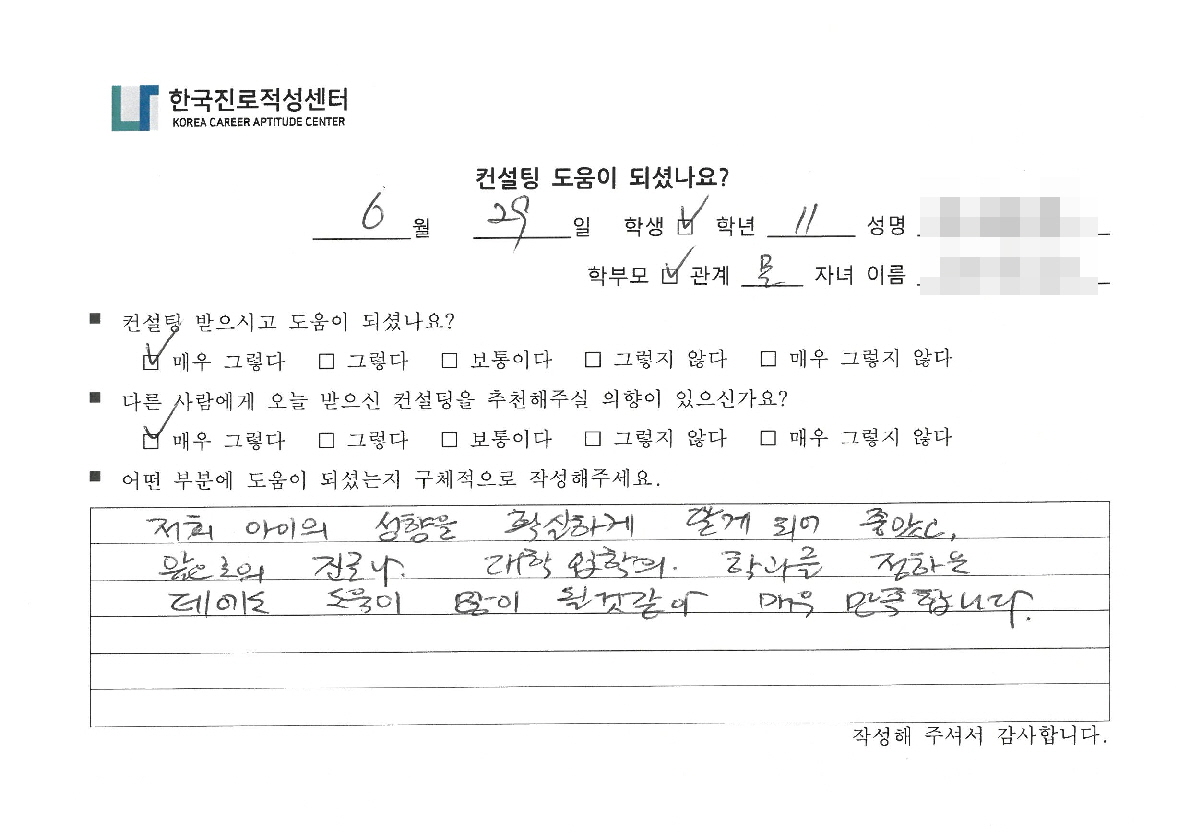 한국진로적성센터
KOREA CAREER APTITUDE CENTER
컨설팅 도움이 되셨나요?
6 월 29 일 학생 ☑ 학년 11 성명
학부모 ☑ 관계 모 자녀 이름
■ 컨설팅 받으시고 도움이 되셨나요?
☑ 매우 그렇다 □ 그렇다 □ 보통이다 □ 그렇지 않다 □ 매우 그렇지 않다
■ 다른 사람에게 오늘 받으신 컨설팅을 추천해주실 의향이 있으신가요?
☑ 매우 그렇다 □ 그렇다 □ 보통이다 □ 그렇지 않다 □ 매우 그렇지 않다
■ 어떤 부분에 도움이 되셨는지 구체적으로 작성해주세요.
저희 아이의 성향을 확실하게 알게 되어 좋았고,
앞으로의 진로나. 대학 입학의. 학과를 정하는
데에도 도움이 많이 될것같아 매우 만족합니다.
작성해 주셔서 감사합니다.